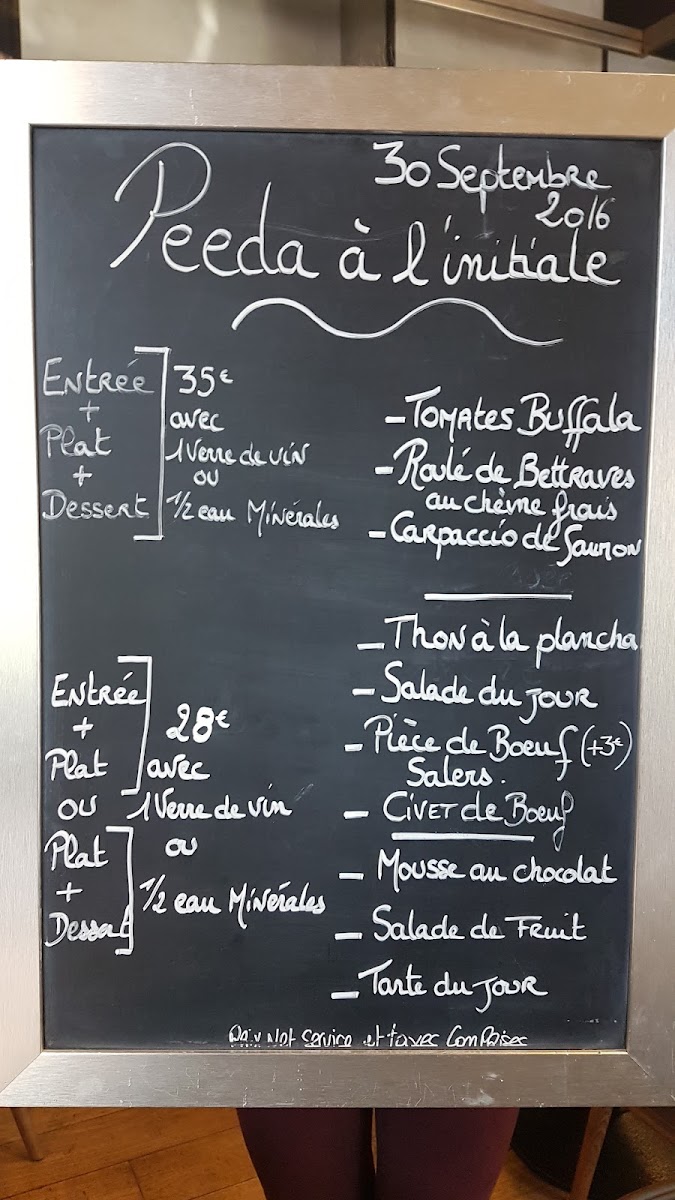 30 Septembre
2016
Peeda à l'initiale
Entrée
+
Plat
+
Dessert
35€
avec
1 Verre de vin
ou
1/2 eau Minérales
- Tomates Buffala
- Roulé de Bettraves
au chèvre frais
- Carpaccio de Saumon
- Thon à la plancha
- Salade du jour
- Pièce de Boeuf (+3€)
Salers.
- Civet de Boeuf
- Mousse au chocolat
- Salade de Fruit
- Tarte du jour
Entrée
+
Plat
ou
Plat
+
Dessert
28€
avec
1 Verre de vin
ou
1/2 eau Minérales
Prix Net Service et taxes Comprises